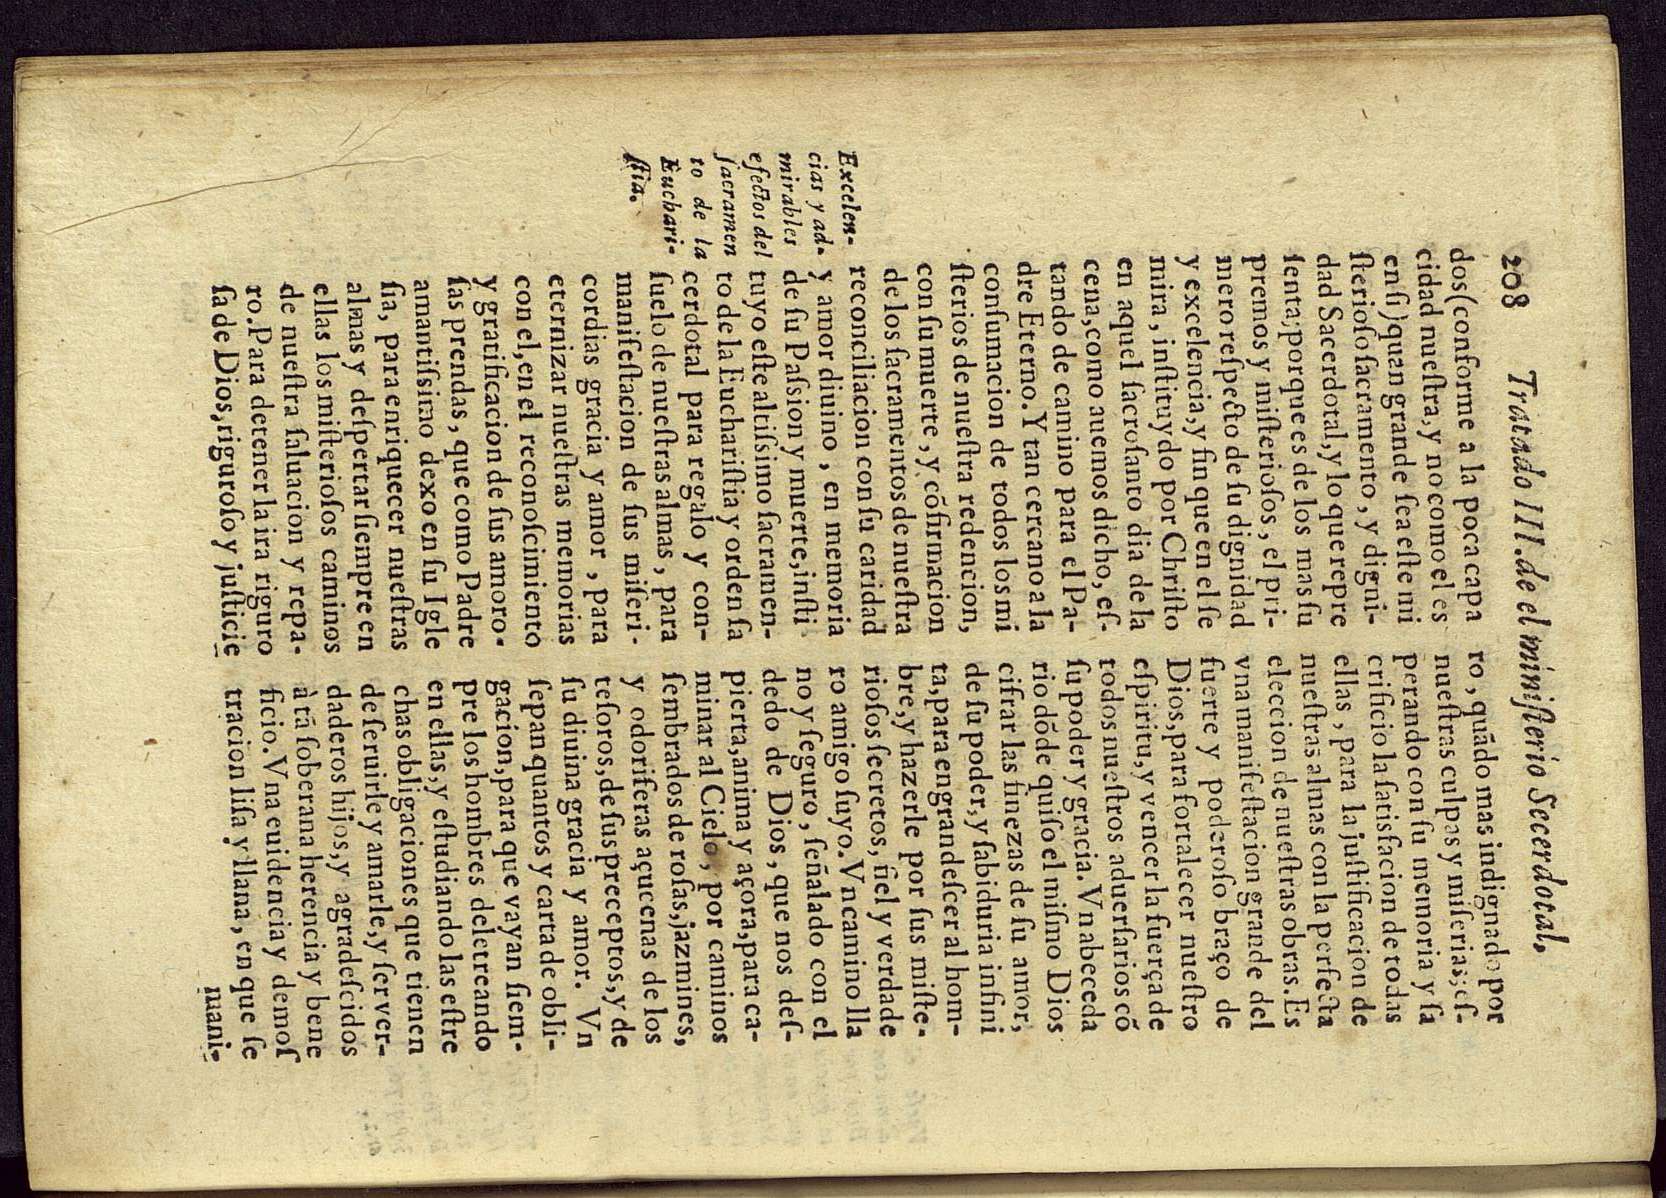 208 Tratado III. de el ministerio Secerdotal,
dos (conforme a la poca capa
cidad nueſtra, y no como el es
en ſi) quan grande ſea eſte mi
ſterioſo ſacramento, y digni-
dad Sacerdotal, y lo que repre
ſenta; porque es de los mas ſu
premos y miſterioſos, el pri-
mero reſpecto de ſu dignidad
y excelencia, y fin que en el ſe
mira, inſtituydo por Chriſto
en aquel ſacroſanto dia de la
cena, como auemos dicho, eſ-
tando de camino para el Pa-
dre Eterno. Y tan cercano a la
conſumacion de todos los mi
ſterios de nueſtra redencion,
con ſu muerte, y cõfirmacion
de los ſacramentos de nueſtra
reconciliacion con ſu caridad
y amor diuino, en memoria
de ſu Paſsion y muerte, inſti
tuyo eſte altiſsimo ſacramen-
to de la Euchariſtia y orden ſa
cerdotal para regalo y con-
ſuelo de nueſtras almas, para
manifeſtacion de ſus miſeri-
cordias gracia y amor, para
eternizar nueſtras memorias
con el, en el reconoſcimiento
y gratificacion de ſus amoro-
ſas prendas, que como Padre
amantiſsimo dexo en ſu Igle
ſia, para enriquecer nueſtras
almas y deſpertar ſiempre en
ellas los miſterioſos caminos
de nueſtra ſaluacion y repa-
ro. Para detener la ira riguro
ſa de Dios, riguroſo y juſticie
Excelen-
cias y ad-
mirables
efectos del
ſacramen
to de la
Euchari-
ſtia.
ro, quãdo mas indignado por
nueſtras culpas y miſerias; eſ-
perando con ſu memoria y ſa
crificio la ſatisfacion de todas
ellas, para la juſtificacion de
nueſtras almas con la perfecta
eleccion de nueſtras obras. Es
vna manifeſtacion grande del
fuerte y poderoſo braço de
Dios, para fortalecer nueſtro
eſpiritu, y vencer la fuerça de
todos nueſtros aduerſarios cõ
ſu poder y gracia. Vn abeceda
rio dõde quiſo el miſmo Dios
cifrar las finezas de ſu amor,
de ſu poder, y ſabiduria infini
ta, para engrandeſcer al hom-
bre, y hazerle por ſus miſte-
rioſos ſecretos, fiel y verdade
ro amigo ſuyo. Vn camino lla
no y ſeguro, ſeñalado con el
dedo de Dios, que nos deſ-
pierta, anima y açora, para ca-
minar al Cielo, por caminos
ſembrados de roſas, jazmines,
y odoriferas açucenas de los
teſoros, de ſus preceptos, y de
ſu diuina gracia y amor. Vn
ſepan quantos y carta de obli-
gacion, para que vayan ſiem-
pre los hombres deletreando
en ellas, y eſtudiando las eſtre
chas obligaciones que tienen
de ſeruirle y amarle, y ſer ver-
daderos hijos, y agradeſcidos
à tã ſoberana herencia y bene
ficio. Vna euidencia y demoſ
tracion liſa y llana, en que ſe
mani-